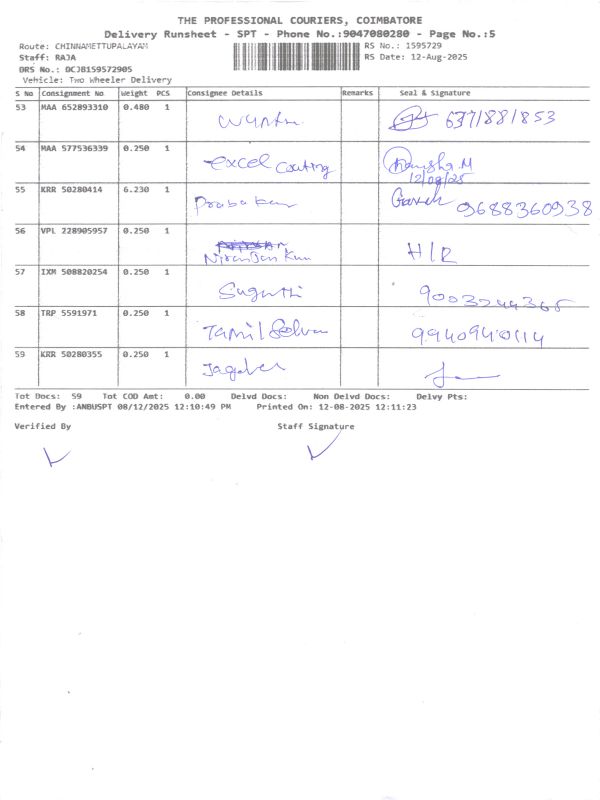 THE PROFESSIONAL COURIERS, COIMBATORE
Delivery Runsheet - SPT - Phone No.:9047080280 - Page No.:5
Route: CHINNAMETTUPALAYAM
RS No.: 1595729
Staff: RAJA
RS Date: 12-Aug-2025
DRS No.: DCJB159572905
Vehicle: Two Wheeler Delivery
S No Consignment No Weight PCS Consignee Details Remarks Seal & Signature
53 MAA 652893310 0.480 1
54 MAA 577536339 0.250 1 excel coating Anusha.M
12/08/25
55 KRR 50280414 6.230 1 Prabakaran 9688360938
56 VPL 228905957 0.250 1 H/R
Niranjan Kum
57 IXM 508820254 0.250 1 9003244365
58 TRP 5591971 0.250 1 Tamil Selvan 9940940114
59 KRR 50280355 0.250 1
Tot Docs: 59 Tot COD Amt: 0.00 Delvd Docs: Non Delvd Docs: Delvy Pts:
Entered By :ANBUSPT 08/12/2025 12:10:49 PM Printed On: 12-08-2025 12:11:23
Verified By Staff Signature